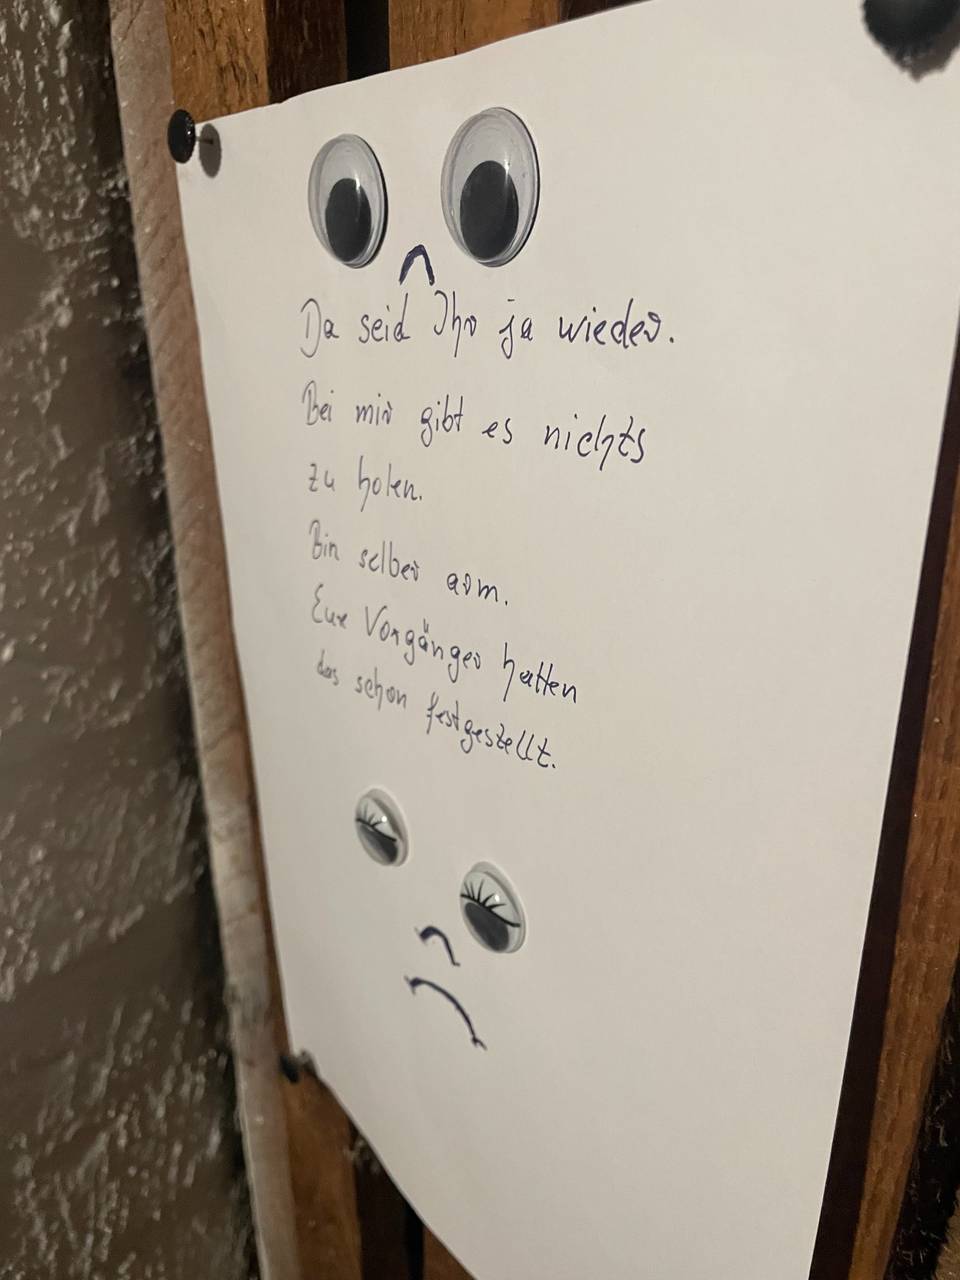 Da seid Ihr ja wieder.
Bei mir gibt es nichts
zu holen.
Bin selber arm.
Eure Vorgänger hatten
das schon festgestellt.